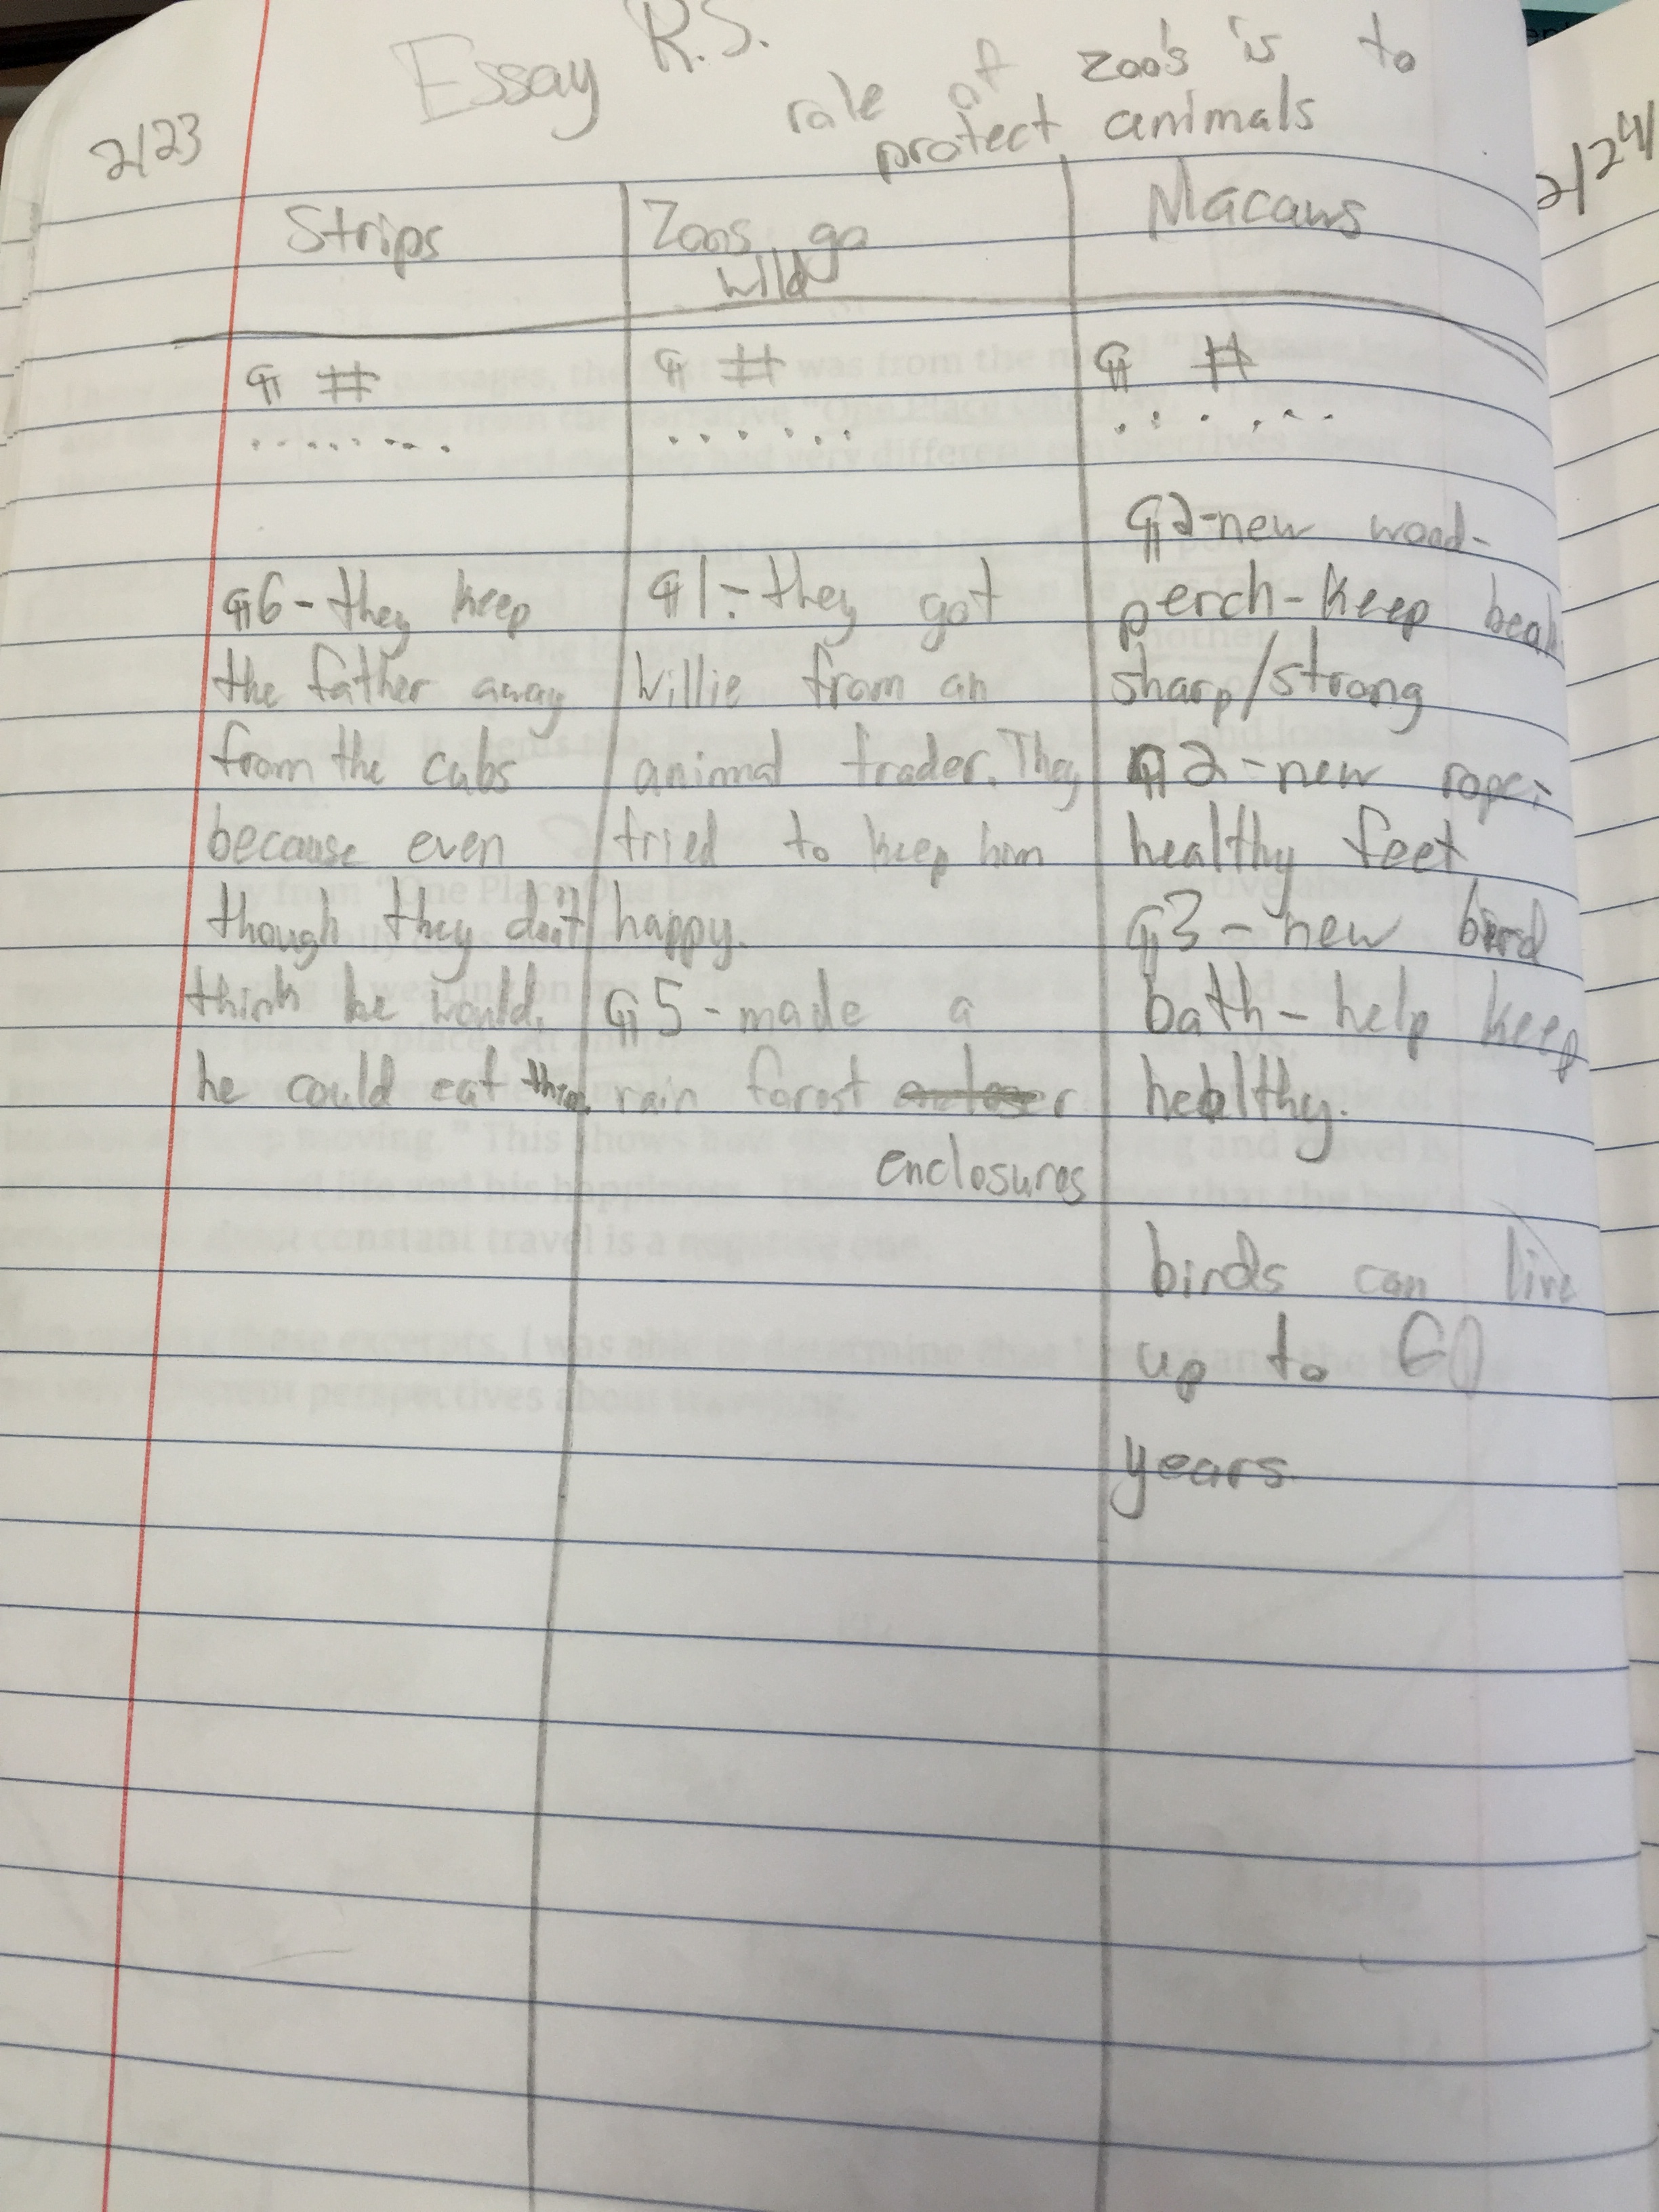 Essay R.S.
role of zoo's is to
protect animals
2/23
2/24
Strips
Zoos go
wild
Macaws
¶ #
¶ #
¶ #
¶6 - they keep
the father away
from the cubs
because even
though they don't
think he would,
he could eat them.
¶1 - they got
Willie from an
animal trader. They
tried to keep him
happy.
¶5 - made a
rain forest
enclosures
¶2 - new wood -
perch - keep beak
sharp/strong
¶2 - new rope -
healthy feet
¶3 - new bird
bath - help keep
healthy.
birds can live
up to 60
years.